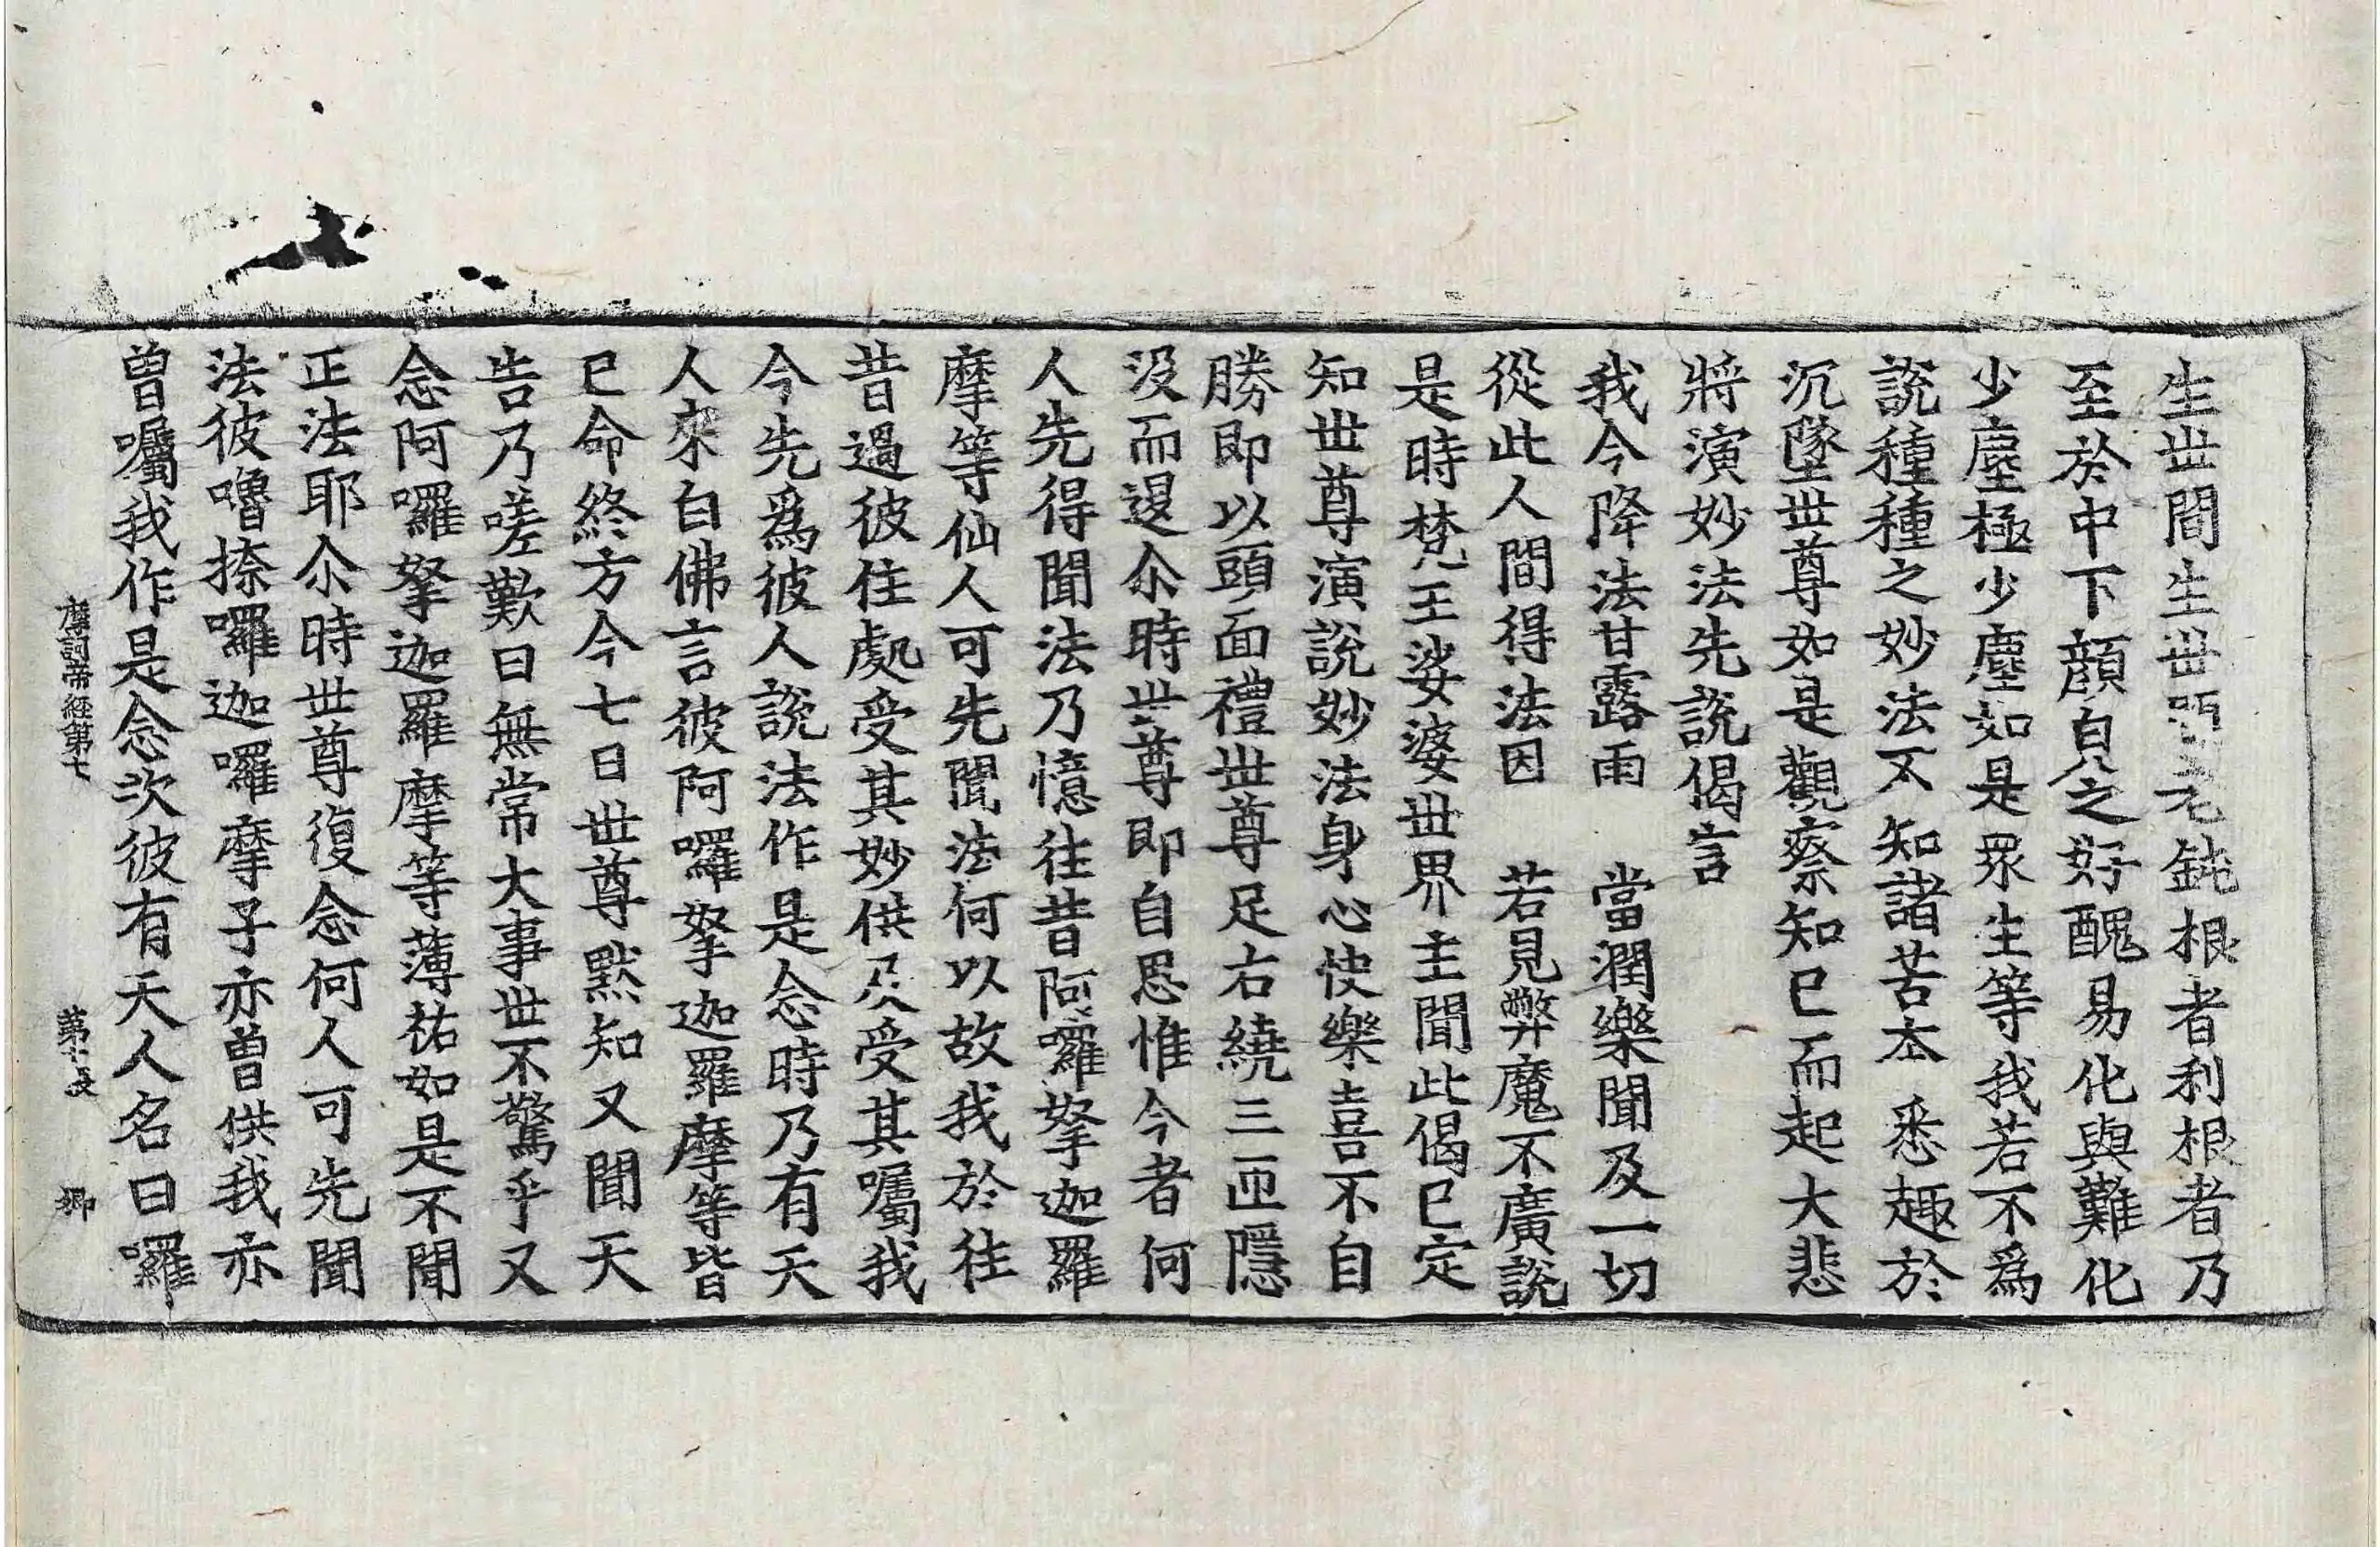 生世間生世間老鈍根者利根者乃
至於中下顔皃之好醜易化與難化
少塵極少塵如是衆生等我若不爲
說種種之妙法不知諸苦本悉趣於
沉墜世尊如是觀察知已而起大悲
將演妙法先說偈言
我今降法甘露雨　當潤樂聞及一切
從此人間得法因　若見弊魔不廣說
是時梵王娑婆世界主聞此偈已定
知世尊演說妙法身心快樂喜不自
勝即以頭面禮世尊足右繞三匝隱
没而退尒時世尊即自思惟今者何
人先得聞法乃憶往昔阿囉拏迦羅
摩等仙人可先聞法何以故我於往
昔過彼住處受其妙供及受其囑我
今先爲彼人說法作是念時乃有天
人來白佛言彼阿囉拏迦羅摩等皆
已命終方今七日世尊默知又聞天
告乃嗟歎曰無常大事世不驚乎又
念阿囉拏迦羅摩等薄祐如是不聞
正法耶尒時世尊復念何人可先聞
法彼嚕捺囉迦囉摩子亦曾供我亦
曾囑我作是念次彼有天人名曰囉
摩訶帝經第七　第十張　鄉